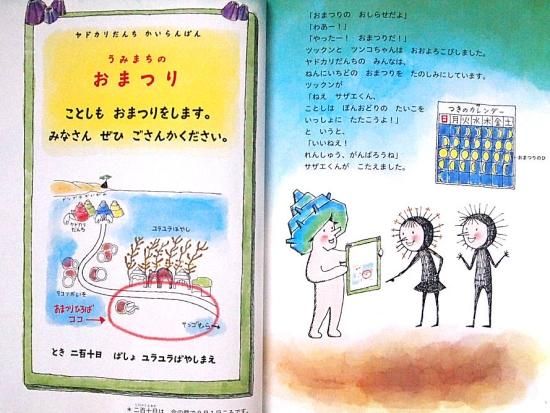 ヤドカリだんち かいらんばん
うみまちの
おまつり
ことしも おまつりをします。
みなさん ぜひ ごさんかください。
ヤドカリ
だんち
ユラユラばやし
おまつりひろば
ココ→
サンゴむら→
とき 二百十日 ばしょ ユラユラばやしまえ
「おまつりの おしらせだよ」
「わあー！」
「やったー！ おまつりだ！」
ツックンと ツンコちゃんは おおよろこびしました。
ヤドカリだんちの みんなは、
ねんにいちどの おまつりを たのしみにしています。
ツックンが
「ねえ サザエくん、
ことしは ぼんおどりの たいこを
いっしょに たたこうよ！」
と いうと、
「いいねえ！
れんしゅう、がんばろうね」
サザエくんが こたえました。
つきのカレンダー
日月火水木金土
おまつりのひ